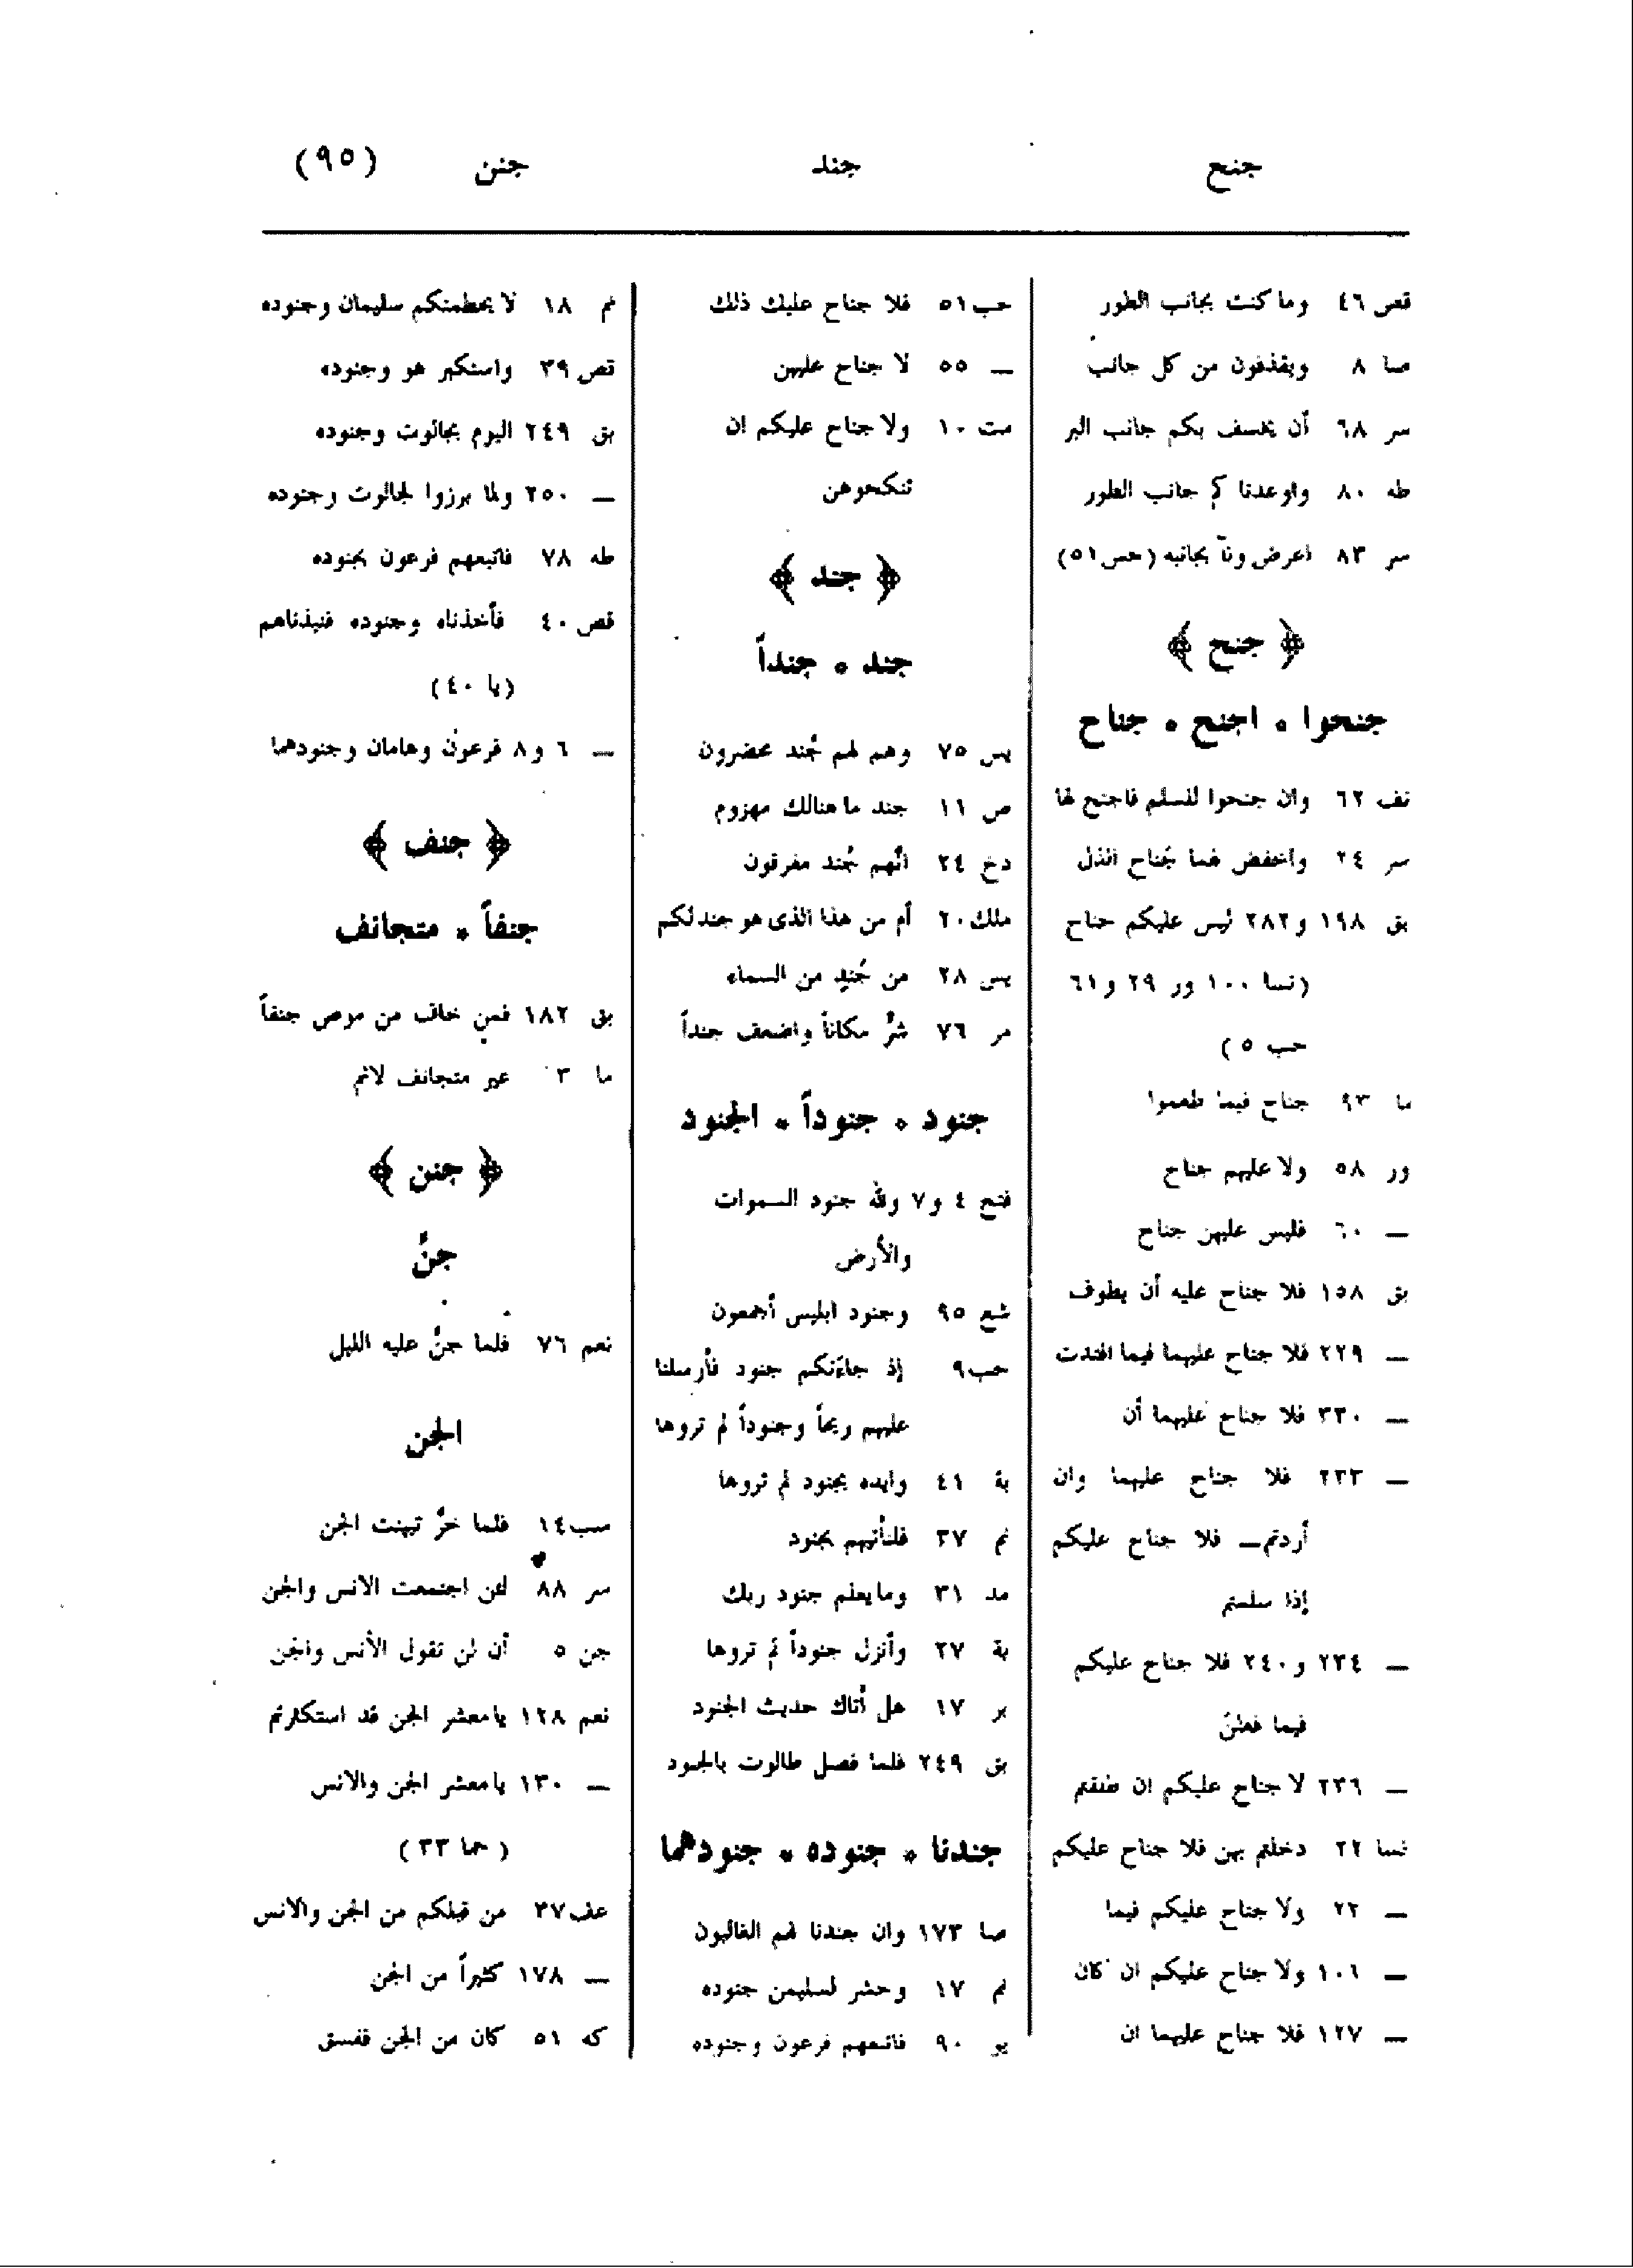 جنح
جند
جنن
(٩٥)
قص ٤٦ وما كنت بجانب الطور
صا ٨ ويقذفون من كل جانب
سر ٦٨ أن يخسف بكم جانب البر
طه ٨٠ وأوعدناكم جانب الطور
سر ٨٣ اعرض ونآ بجانبه (حس ٥١)
﴿ جنح ﴾
جنحوا ٠ اجنح ٠ جناح
نف ٦٢ وان جنحوا للسلم فاجنح لها
سر ٢٤ واخفض لهما جَناح الذل
بق ١٩٨ و٢٨٢ ليس عليكم جناح
(نسا ١٠٠ ور ٢٩ و٦١
حب ٥)
ما ٩٣ جناح فيما طعموا
ور ٥٨ ولا عليهم جناح
ــ ٦٠ فليس عليهن جناح
بق ١٥٨ فلا جناح عليه أن يطوف
ــ ٢٢٩ فلا جناح عليهما فيما افتدت
ــ ٢٣٠ فلا جناح عليهما أن
ــ ٢٣٣ فلا جناح عليهما وان
أردتم ــ فلا جناح عليكم
إذا سلمتم
ــ ٢٣٤ و٢٤٠ فلا جناح عليكم
فيما فعلن
ــ ٢٣٦ لا جناح عليكم ان طلقتم
نسا ٢٢ دخلتم بهن فلا جناح عليكم
ــ ٢٣ ولا جناح عليكم فيما
ــ ١٠٦ ولا جناح عليكم ان كان
ــ ١٢٧ فلا جناح عليهما ان
حب ٥١ فلا جناح عليك ذلك
ــ ٥٥ لا جناح عليهن
مت ١٠ ولا جناح عليكم ان
تنكحوهن
﴿ جند ﴾
جند ٠ جنداً
يس ٧٥ وهم لهم جُند محضرون
ص ١١ جند ما هنالك مهزوم
دخ ٢٤ انَّهم جُند مغرقون
ملك ٢٠ أم من هذا الذى هو جند لكم
يس ٢٨ من جُندٍ من السماء
مر ٧٦ شرٌّ مكاناً واضعف جنداً
جنود ٠ جنوداً ٠ الجنود
فتح ٤ و٧ ولله جنود السموات
والأرض
شع ٩٥ وجنود ابليس أجمعون
حب ٩ إذ جاءتكم جنود فأرسلنا
عليهم ريحاً وجنوداً لم تروها
بة ٤١ وايده بجنود لم تروها
نم ٣٧ فلنأتينهم بجنود
مد ٣١ وما يعلم جنود ربك
بة ٢٧ وأنزل جنوداً لم تروها
بر ١٧ هل أتاك حديث الجنود
بق ٢٤٩ فلما فصل طالوت بالجنود
جندنا ٠ جنوده ٠ جنودهما
صا ١٧٣ وان جندنا لهم الغالبون
نم ١٧ وحشر لسليمن جنوده
يو ٩٠ فاتبعهم فرعون وجنوده
نم ١٨ لا يحطمنكم سليمان وجنوده
قص ٣٩ واستكبر هو وجنوده
بق ٢٤٩ اليوم بجالوت وجنوده
ــ ٢٥٠ ولما برزوا لجالوت وجنوده
طه ٧٨ فاتبعهم فرعون بجنوده
قص ٤٠ فأخذناه وجنوده فنبذناهم
(يا ٤٠)
ــ ٦ و٨ فرعون وهامان وجنودهما
﴿ جنف ﴾
جنفاً ٠ متجانف
بق ١٨٢ فمن خاف من موص جنفاً
ما ٣ غير متجانف لاثم
﴿ جنن ﴾
جنَّ
نعم ٧٦ فلما جنَّ عليه الليل
الجن
سب ١٤ فلما خرَّ تبينت الجن
سر ٨٨ لئن اجتمعت الانس والجن
جن ٥ أن لن تقول الأنس والجن
نعم ١٢٨ يا معشر الجن قد استكثرتم
ــ ١٣٠ يا معشر الجن والانس
(حما ٣٣)
عف ٣٧ من قبلكم من الجن والانس
ــ ١٧٨ كثيراً من الجن
كه ٥١ كان من الجن ففسق